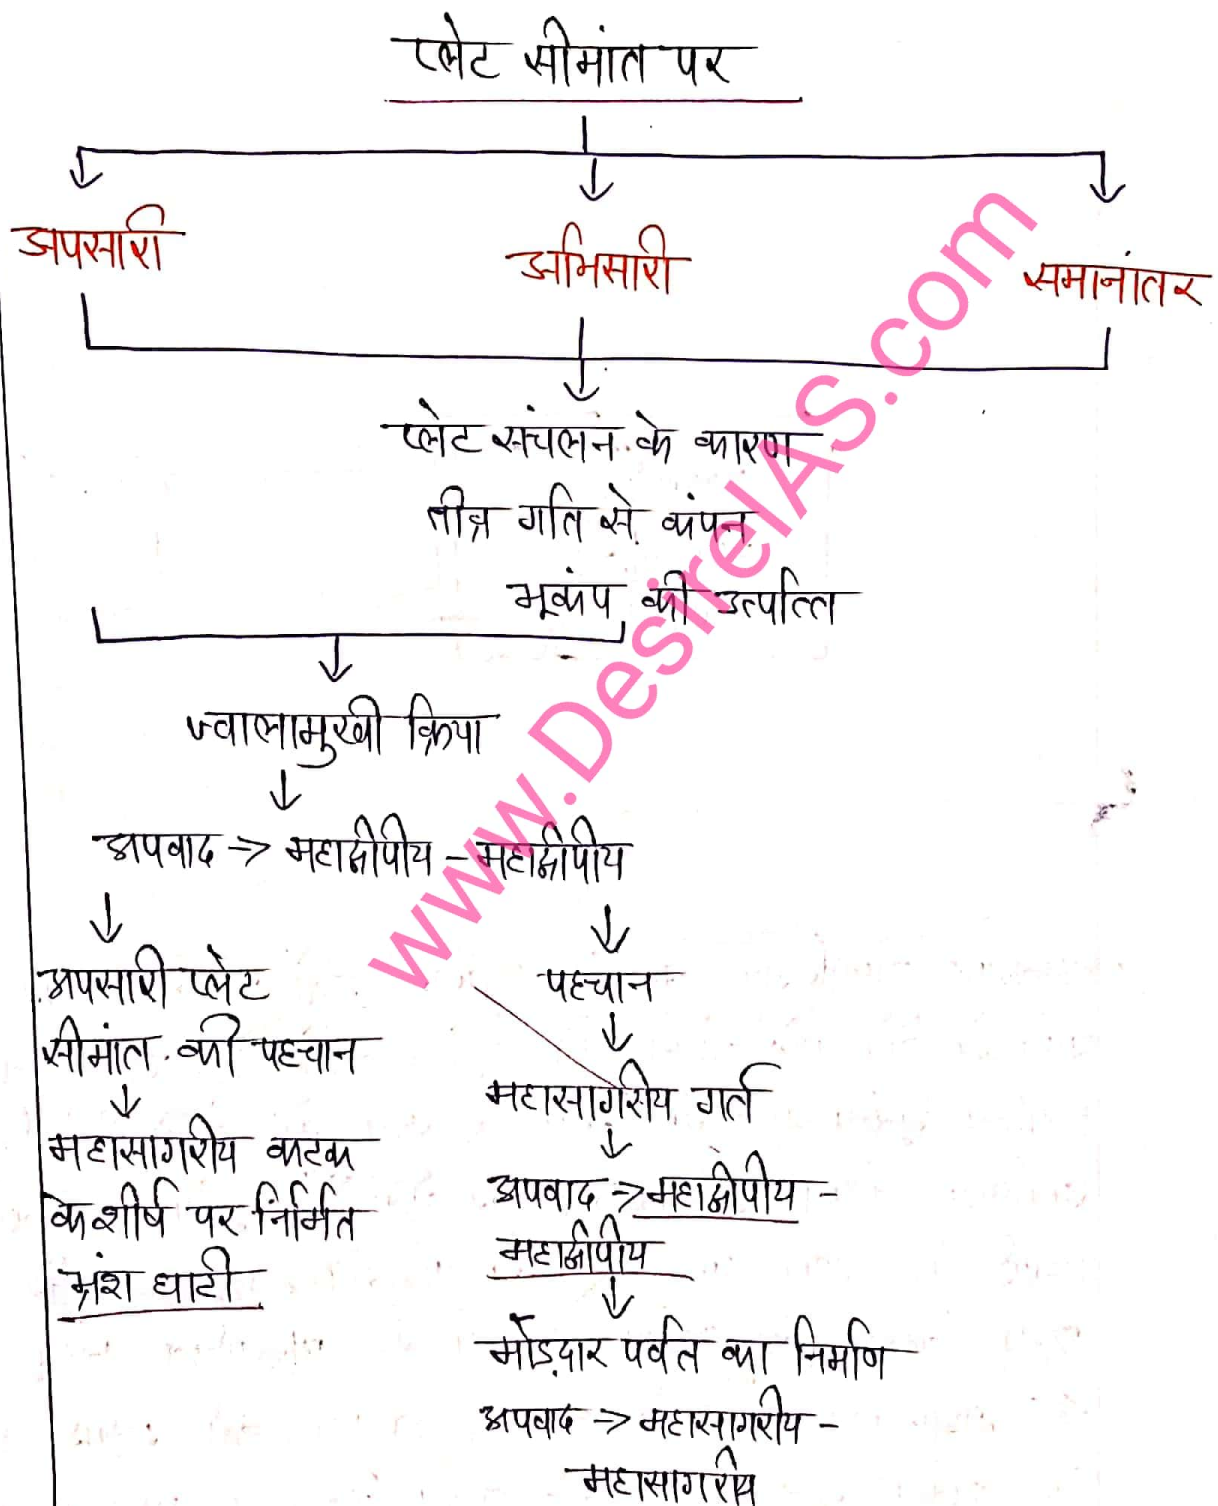 प्लेट सीमांत पर
अपसारी
अभिसारी
समानांतर
प्लेट संचलन के कारण
तीव्र गति से कंपन
भूकंप की उत्पत्ति
ज्वालामुखी क्रिया
अपवाद → महाद्वीपीय - महाद्वीपीय
अपसारी प्लेट
सीमांत की पहचान
महासागरीय कटक
के शीर्ष पर निर्मित
भ्रंश घाटी
पहचान
महासागरीय गर्त
अपवाद → महाद्वीपीय -
महाद्वीपीय
मोड़दार पर्वत का निर्माण
अपवाद → महासागरीय -
महासागरीय
www.DesireIAS.com